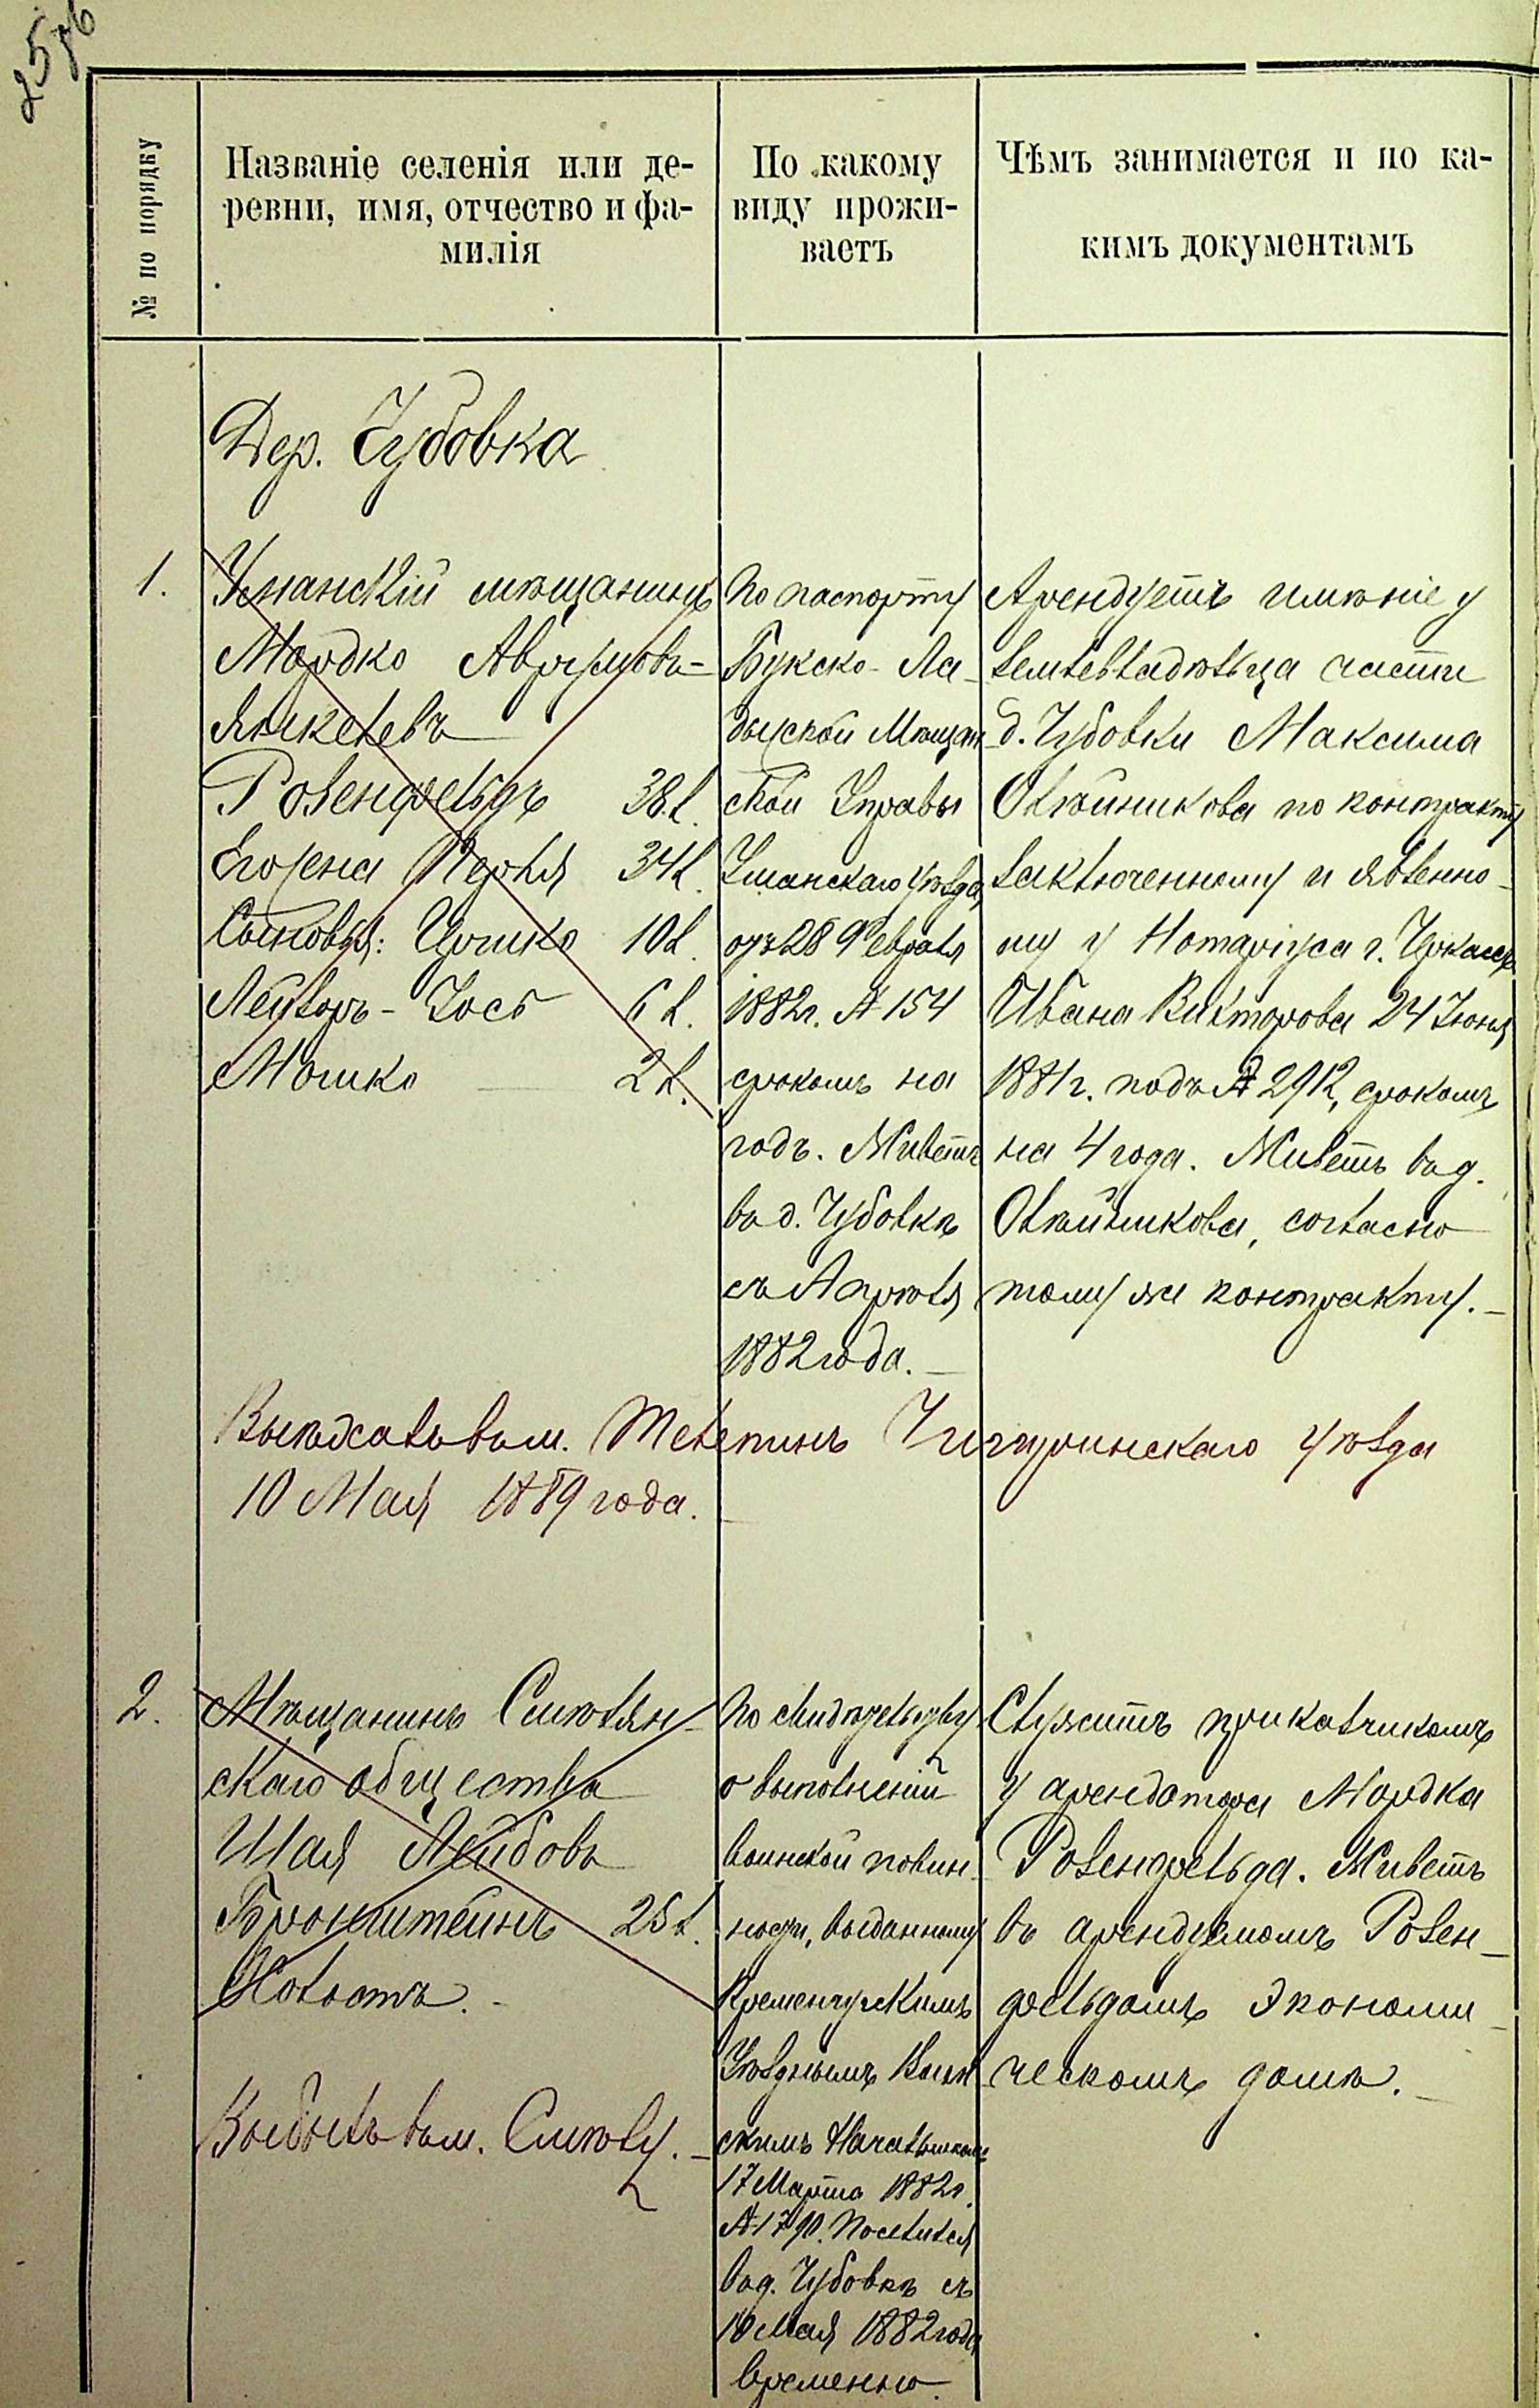 № по порядку
Названіе селенія или де-
ревни, имя, отчество и фа-
милія
По какому
виду прожи-
ваетъ
Чѣмъ занимается и по ка-
кимъ документамъ
Дер. Чубовка
1.
Уманскій мѣщанинъ
Мордко Аврумовъ-
Янкелевъ
Розенфельдъ 38 л.
Его жена Перля 34 л.
Сыновья: Иршко 10 л.
Лейзоръ-Іось 6 л.
Мошко 2 л.
По паспорту
Букско-Ла-
дыской Мѣщан
ской Управы
Уманскаго уѣзда,
отъ 28 Февраля
1882 г. № 154
срокомъ на
годъ. Живетъ
въ д. Чубовкѣ
съ Апрѣля
1882 года.
Арендуетъ имѣніе у
землевладѣльца части
д. Чубовки Максима
Олѣйникова по контракту
заключенному и явленно-
му у Нотаріуса г. Черкассъ
Ивана Викторова 24 Іюня
1881 г. подъ № 2912, срокомъ
на 4 года. Живетъ въ д.
Олѣйникова, согласно
тому же контракту.
Выѣхалъ въ м. Телепинъ Чигиринскаго уѣзда
10 Мая 1889 года.
2.
Мѣщанинъ Смѣлян-
скаго общества
Шая Лейбовъ
Бронштейнъ 25 л.
Холостъ.
По свидѣтельству
о выполненіи
воинской повин-
ности, выданному
Кременчугскимъ
Уѣзднымъ Воин-
скимъ Начальникомъ
17 Марта 1882 г.
№ 1790. Поселился
въ д. Чубовкѣ съ
10 Мая 1882 года
временно.
Служитъ приказчикомъ
у арендатора Мордка
Розенфельда. Живетъ
въ арендуемомъ Розен-
фельдомъ экономи-
ческомъ домѣ.
Выбылъ въ м. Смѣлу.